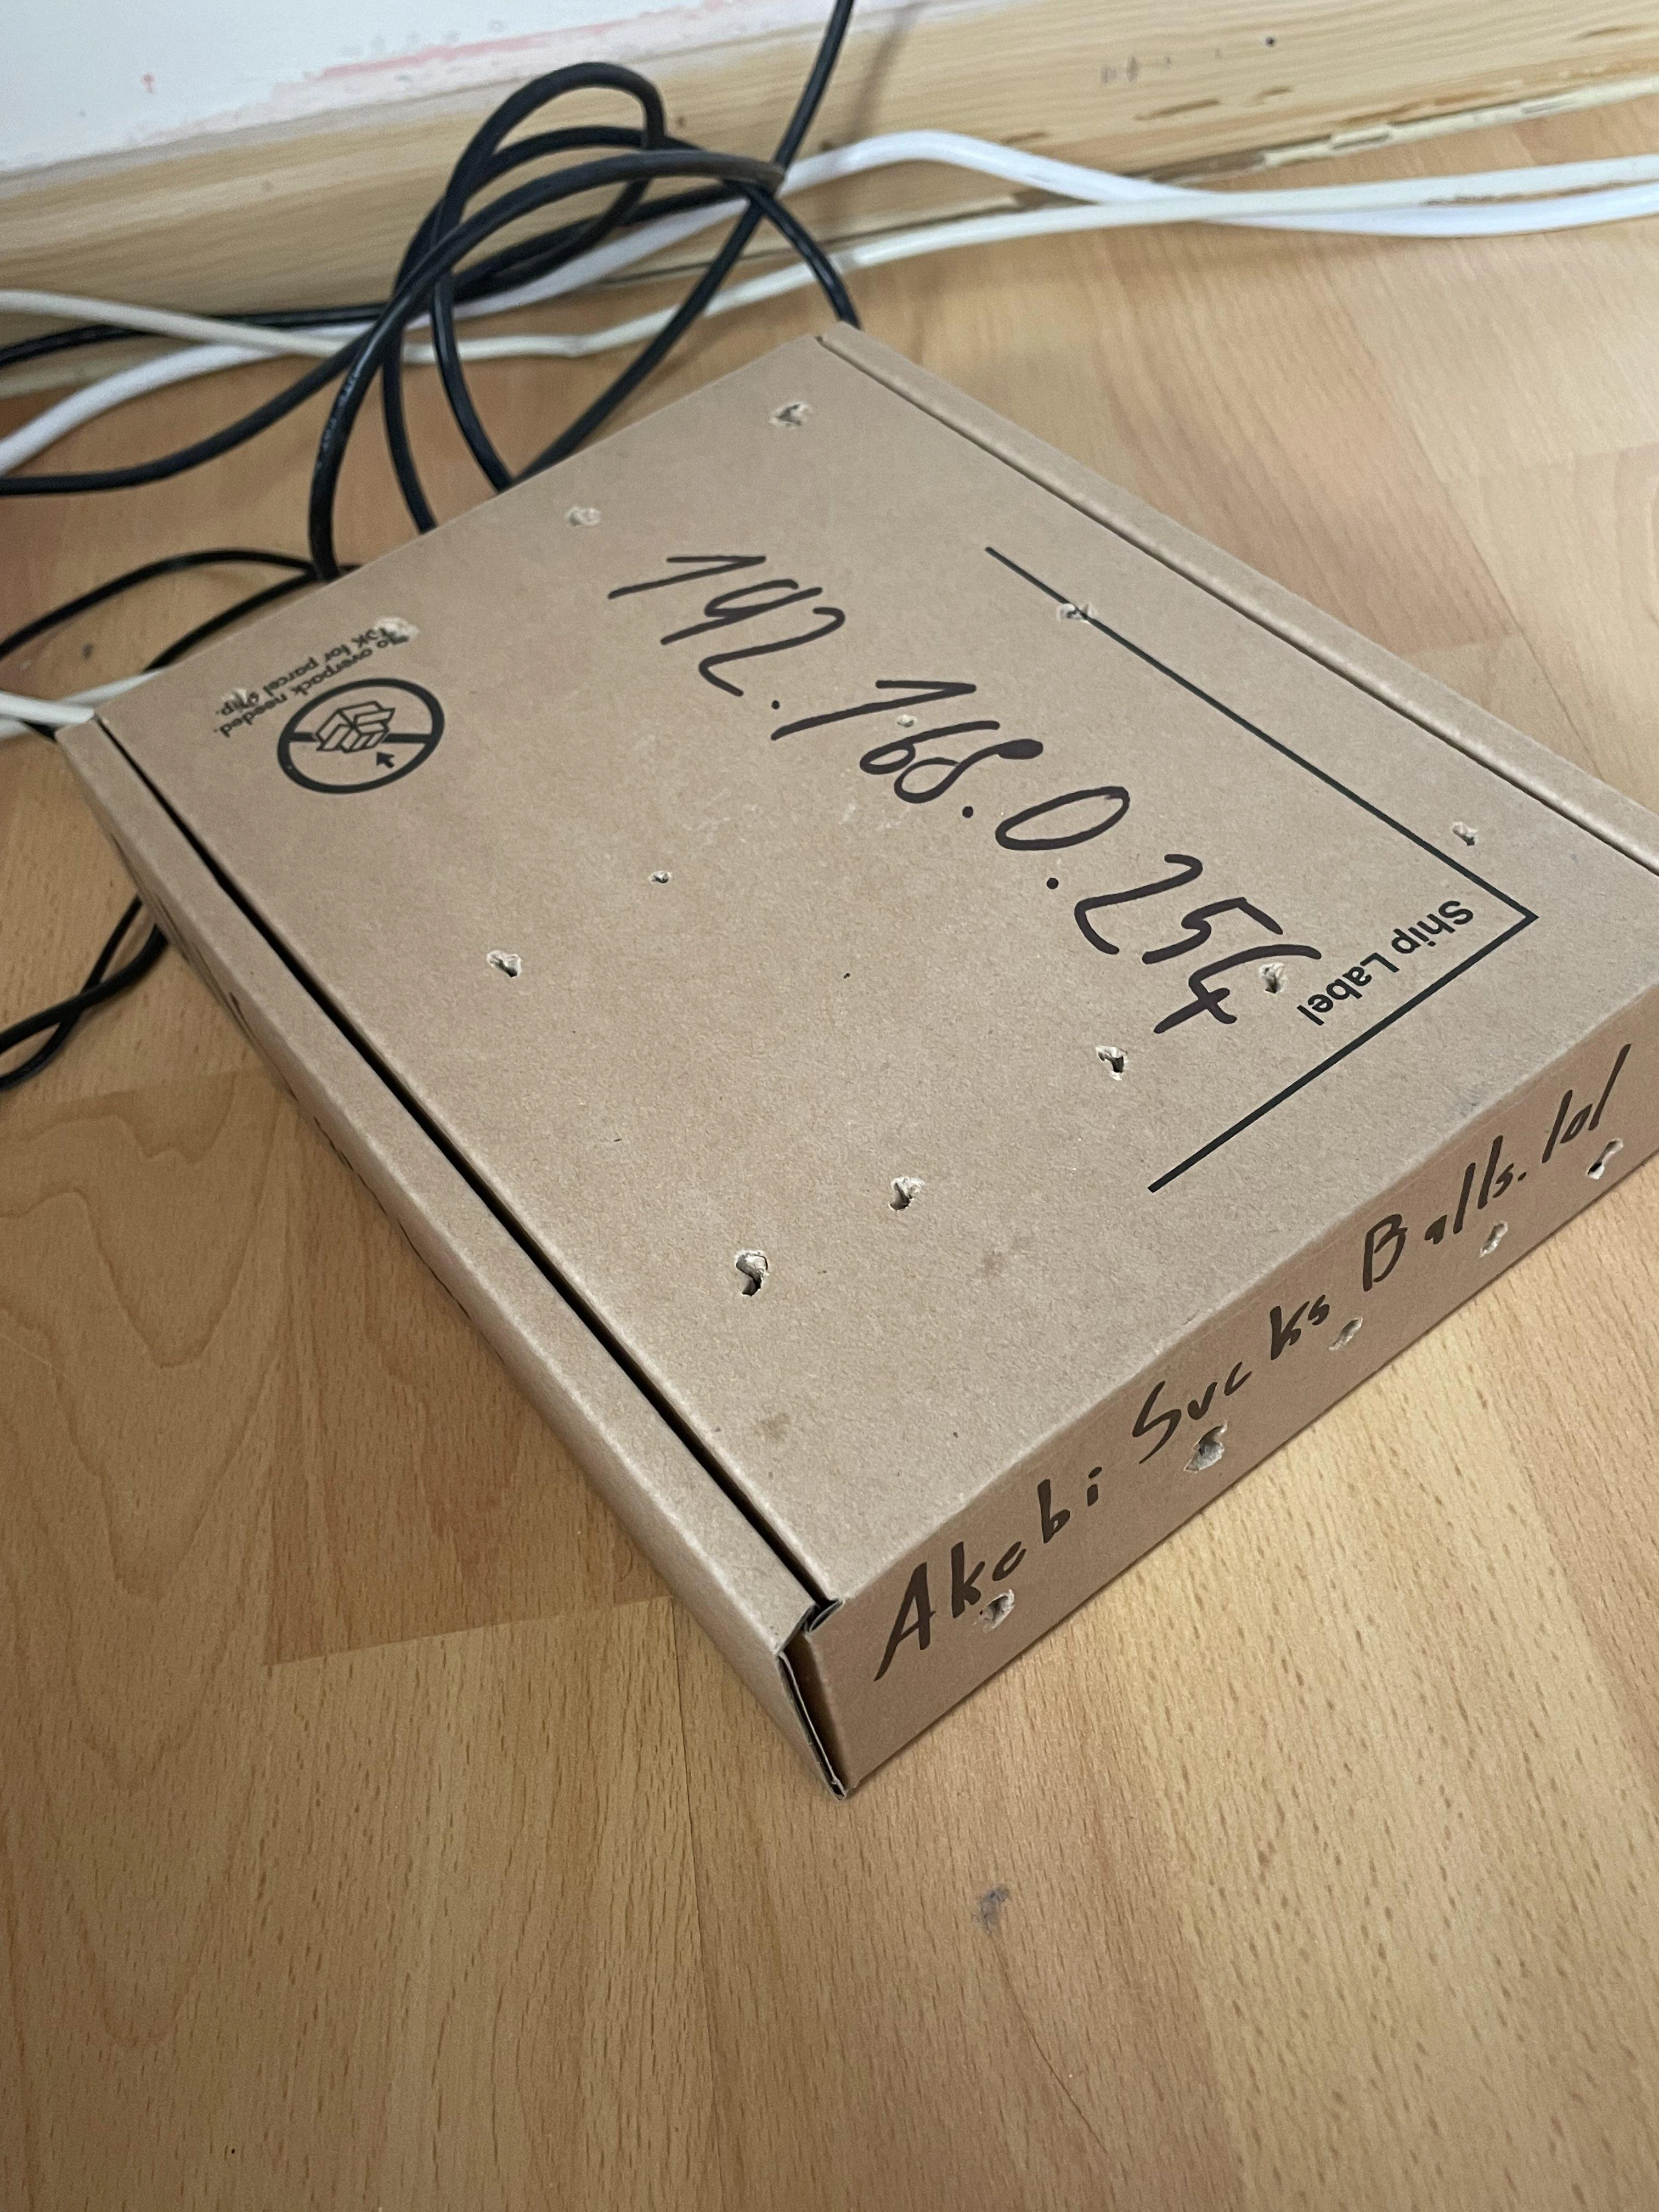 192.168.0.254
Ship Label
No overpack needed.
OK for parcel ship.
Akabi Sucks Balls.lol